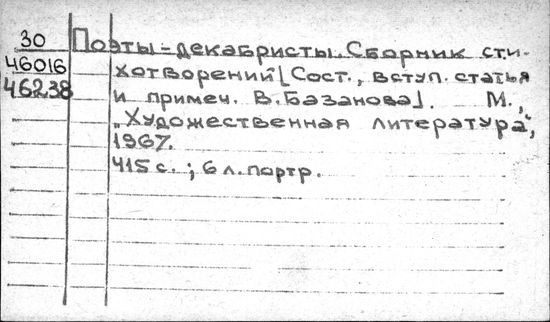 30 Поэты-декабристы. Сборник сти-
46016 хотворений [Сост., вступ. статья
46238 и примеч. В. Базанова]. М.,
„Художественная литература",
1967.
415 с.; 6 л. портр.